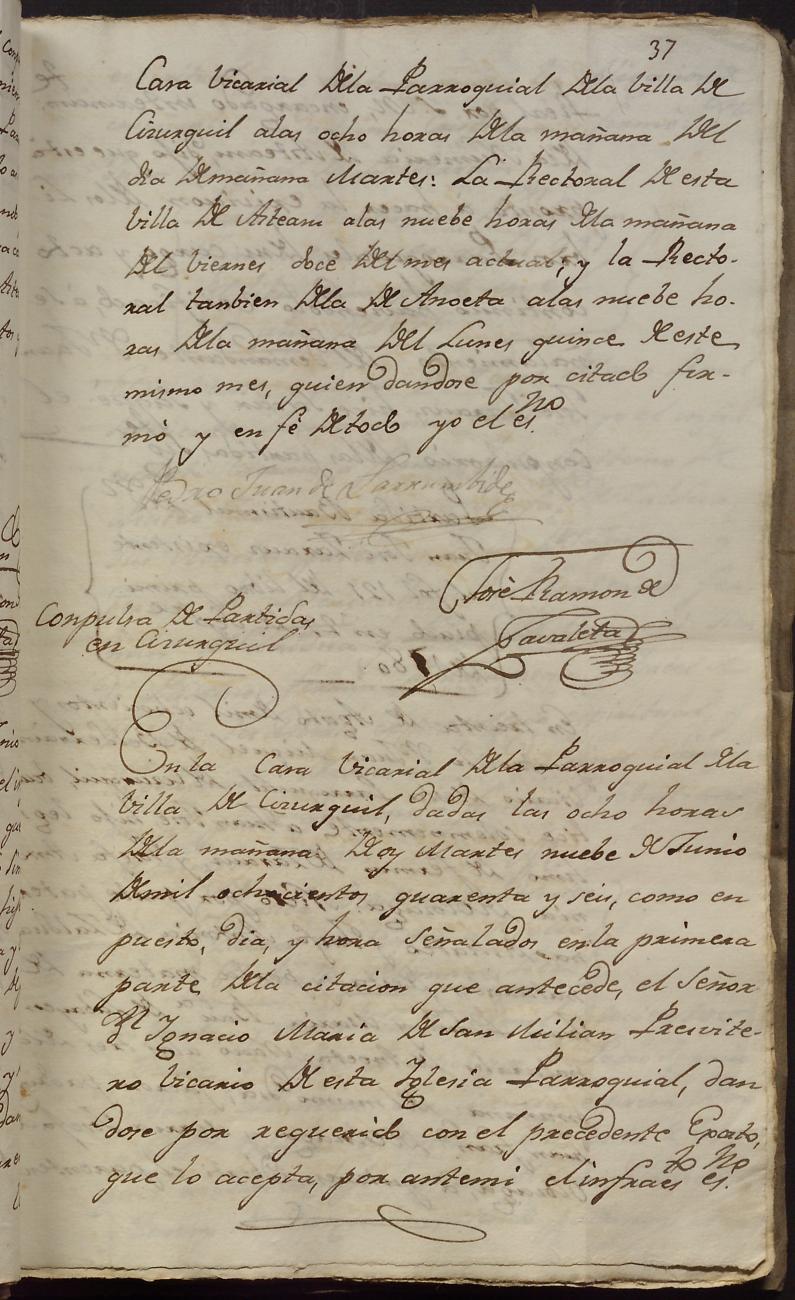 37
Casa Vicarial Dela Parroquial Dela Villa De
Cizurquil alas ocho horas Dela mañana Del
dia Demañana Martes: La Rectoral De esta
Villa De Asteasu alas nuebe horas dela mañana
Del Viernes doce Del mes actual; y la Recto-
ral tanbien Dela De Anoeta alas nuebe ho-
ras Dela mañana Del Lunes quince De este
mismo mes, quien dandose por citado fir-
mó y en fé De todo yo el es.no
Pedro Juan de Larrumbide
José Ramon de
Zavaleta
Conpulsa De Partidas
en Cizurquil
En la Casa Vicarial Dela Parroquial dela
Villa De Cizurquil, dadas las ocho horas
Dela mañana Deoy Martes nuebe De Junio
Demil ochocientos quarenta y seis, como en
puesto, dia, y hora señalados enla primera
parte Dela citacion que antecede, el Señor
Dn Ignacio Maria De San Milian Presvite-
ro Vicario De esta Yglesia Parroquial, dan
dose por requerido con el precedente Exorto,
que lo acepta, por antemi el infraes.to es.no